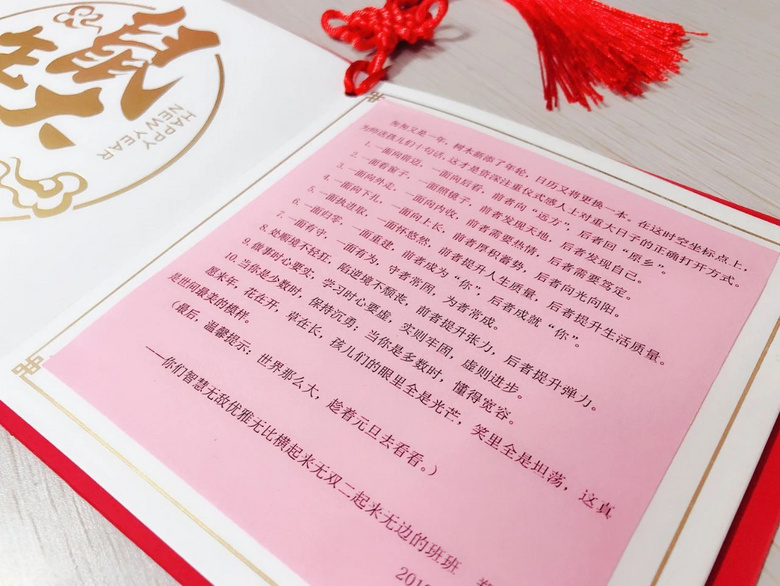 鼠
HAPPY
NEW YEAR
匆匆又是一年，树木新添了年轮，日历又将更换一本。在这时空坐标点上，
为师送孩儿们十句话，这才是资深注重仪式感人士对重大日子的正确打开方式。
1. 一面向前迈，一面向后看，前者向“远方”，后者回“原乡”。
2. 一面看窗子，一面照镜子，前者发现天地，后者发现自己。
3. 一面向外走，一面向内收，前者需要热情，后者需要笃定。
4. 一面向下扎，一面向上长，前者厚积蓄势，后者向光向阳。
5. 一面执进取，一面怀悠然，前者提升人生质量，后者提升生活质量。
6. 一面归零，一面重建，前者成为“你”，后者成就“你”。
7. 一面有守，一面有为，守者常固，为者常成。
8. 处顺境不轻狂，陷逆境不颓丧，前者提升张力，后者提升弹力。
9. 做事时心要实，学习时心要虚，实则牢固，虚则进步。
10. 当你是少数时，保持沉勇；当你是多数时，懂得宽容。
愿来年，花在开，草在长，孩儿们的眼里全是光芒，笑里全是坦荡，这真
是世间最美的模样。
（最后，温馨提示：世界那么大，趁着元旦去看看。）
——你们智慧无敌优雅无比横起来无双二起来无边的班班